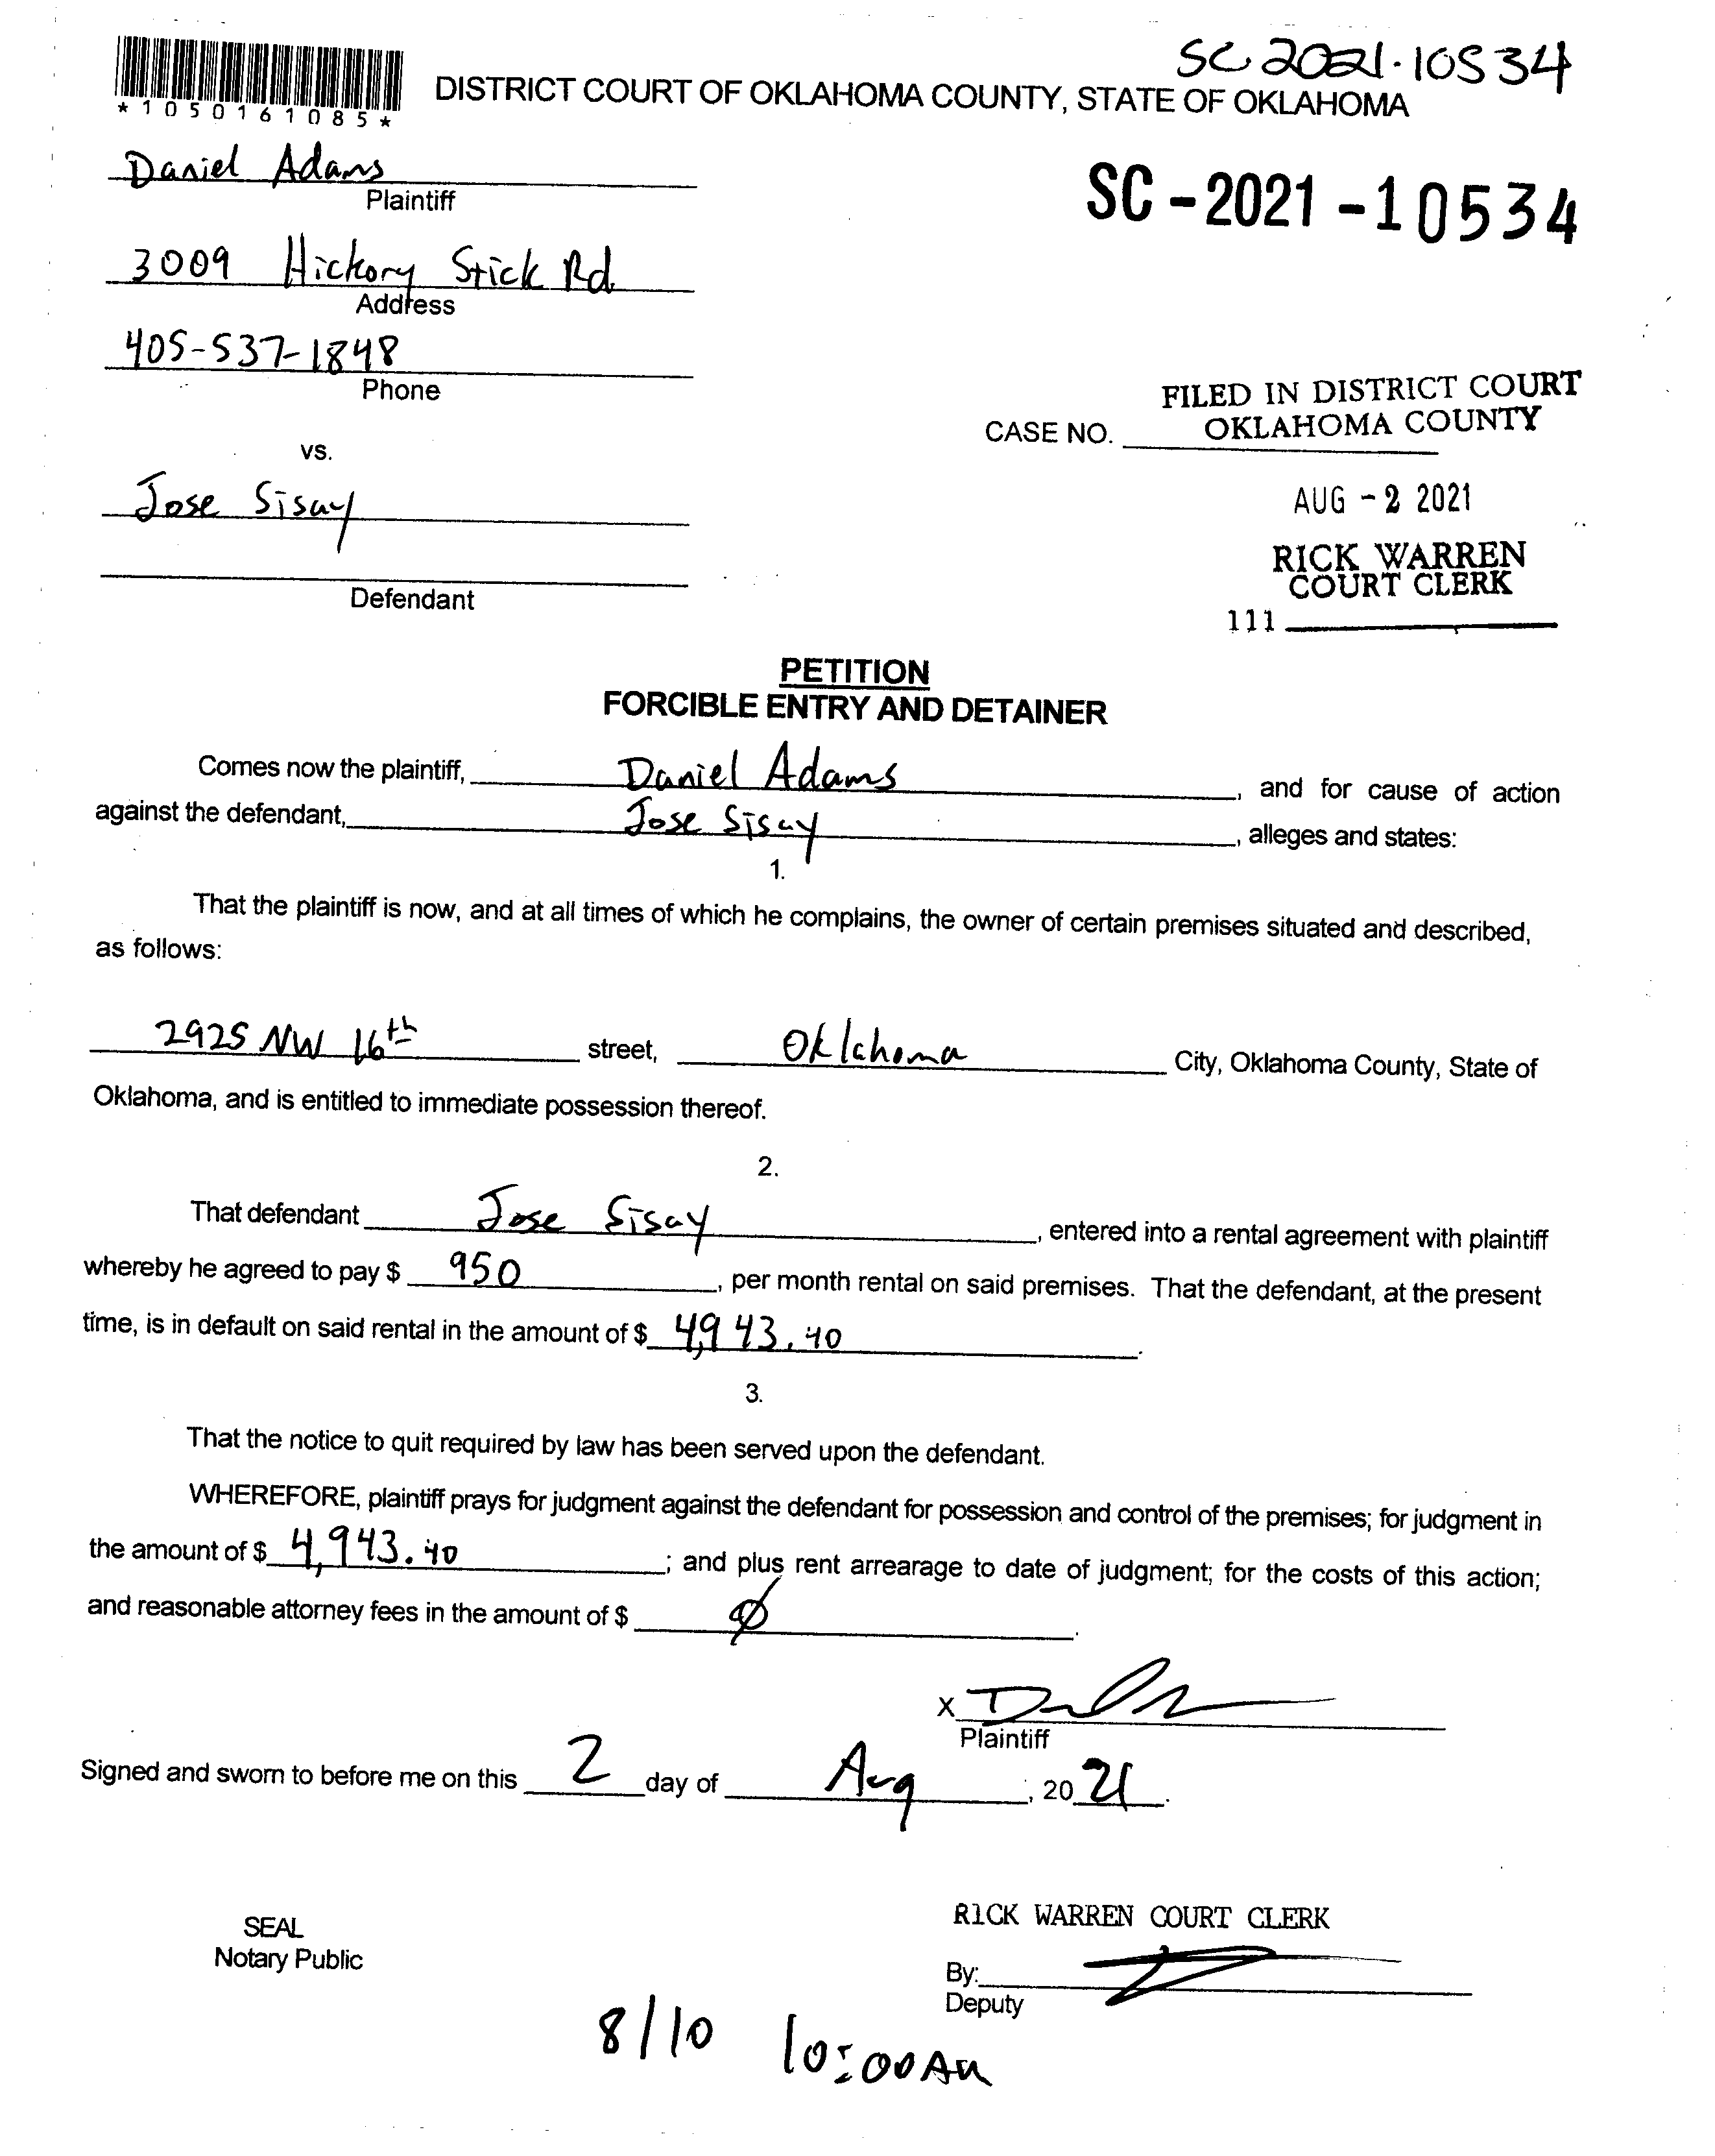 SC 2021-10534
*1050161085*
DISTRICT COURT OF OKLAHOMA COUNTY, STATE OF OKLAHOMA
Daniel Adams
Plaintiff
SC-2021-10534
3009 Hickory Stick Rd
Address
405-537-1848
Phone
FILED IN DISTRICT COURT
CASE NO. OKLAHOMA COUNTY
vs.
Jose Sisay
AUG -2 2021
RICK WARREN
COURT CLERK
Defendant
111
PETITION
FORCIBLE ENTRY AND DETAINER
Comes now the plaintiff, Daniel Adams, and for cause of action
against the defendant, Jose Sisay, alleges and states:
1.
That the plaintiff is now, and at all times of which he complains, the owner of certain premises situated and described,
as follows:
2925 NW 16th street, Oklahoma City, Oklahoma County, State of
Oklahoma, and is entitled to immediate possession thereof.
2.
That defendant Jose Sisay, entered into a rental agreement with plaintiff
whereby he agreed to pay $ 950, per month rental on said premises. That the defendant, at the present
time, is in default on said rental in the amount of $ 4,943.40.
3.
That the notice to quit required by law has been served upon the defendant.
WHEREFORE, plaintiff prays for judgment against the defendant for possession and control of the premises; for judgment in
the amount of $ 4,943.40; and plus rent arrearage to date of judgment; for the costs of this action;
and reasonable attorney fees in the amount of $ ∅.
X
Plaintiff
Signed and sworn to before me on this 2 day of Aug, 2021.
RICK WARREN COURT CLERK
SEAL
Notary Public
By:
Deputy
8/10 10:00AM